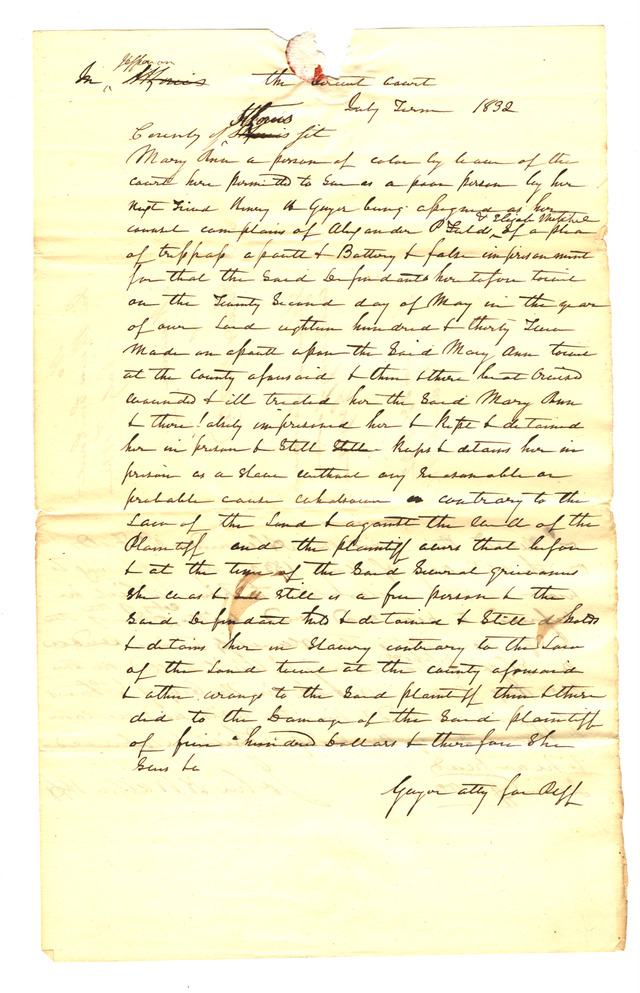 Jefferson
In St Louis the Circuit Court
July Term 1832
St Louis
County of St Louis Sct
Mary Ann a person of color by leave of the
court here permitted to Sue as a poor person by her
next Friend Henry S Geyer being assigned as her
& Elijah Mitchel
counsel complains of Alexander P Field, of a plea
of trespass assault & Battery & false imprisonment
for that the Said Defendants heretofore towit
on the Twenty Second day of May in the year
of our Lord eighteen hundred & thirty Two
Made an assault upon the Said Mary Ann towit
at the county aforesaid & then & there beat bruised
wounded & ill treated her the Said Mary Ann
& then & there imprisoned her & Kept & detained
her in prison & Still Still Keeps & detains her in
prison as a Slave without any Reasonable or
probable cause whatsoever contrary to the
Law of the Land & against the will of the
Plaintiff and the plaintiff avers that before
& at the time of the Said Several grievances
She was & Still is a free person & the
Said Defendant held & detained & Still holds
& detains her in Slavery contrary to the Law
of the Land towit at the county aforesaid
& other wrongs to the Said plaintiff then & there
did to the Damage of the Said plaintiff
of five hundred Dollars & therefore She
Sues &c
Geyer atty for Plff